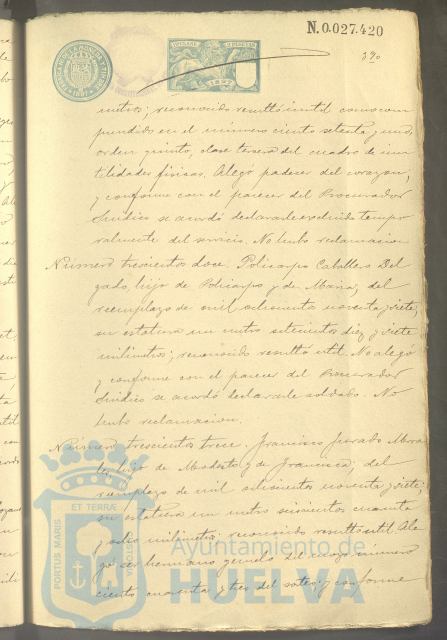 N.0.027.420
390
metros; reconocido resultó inutil como com
prendido en el número ciento setenta y uno,
orden quinto, clase tercera del cuadro de inu
tilidades fisicas. Alegó padecer del corazon,
y conforme con el parecer del Procurador
Sindico se acordó declararle excluido tempo
ralmente del servicio. No hubo reclamacion
Número trescientos doce. Policarpo Caballero Del
gado, hijo de Policarpo y de Maria, del
reemplazo de mil ochocientos noventa y siete;
su estatura un metro setecientos diez y siete
milimetros; reconocido resultó util. No alegó
y conforme con el parecer del Procurador
Sindico se acordó declararle soldado. No
hubo reclamacion.
Número trescientos trece. Francisco Jurado Mora
les, hijo de Modesto y de Francisca, del
reemplazo de mil ochocientos noventa y siete;
su estatura un metro seiscientos cuarenta
y ocho milimetros; reconocido resultó util. Ale
gó ser hermano gemelo del mozo número
ciento cuarenta y tres del sorteo; y conforme
ET TERRÆ
PORTUS MARIS
CUSTODIA
Ayuntamiento de
HUELVA